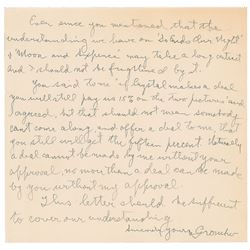 Ever since you mentioned that the
understanding we have on "
& "Moon and Sixpence" may take a long
and I should not be frightened by it.
You said to me "if Crystal makes a deal
you will still pay us 15% on the two pictures" and
I agreed, but that should not mean somebody
can't come along and offer a deal to me that
you still will get the fifteen percent. Actually
a deal cannot be made by me without your
approval, no more than a deal can be made
by you without my approval.
This letter should be sufficient
to cover our understanding
Sincerely yours, Groucho